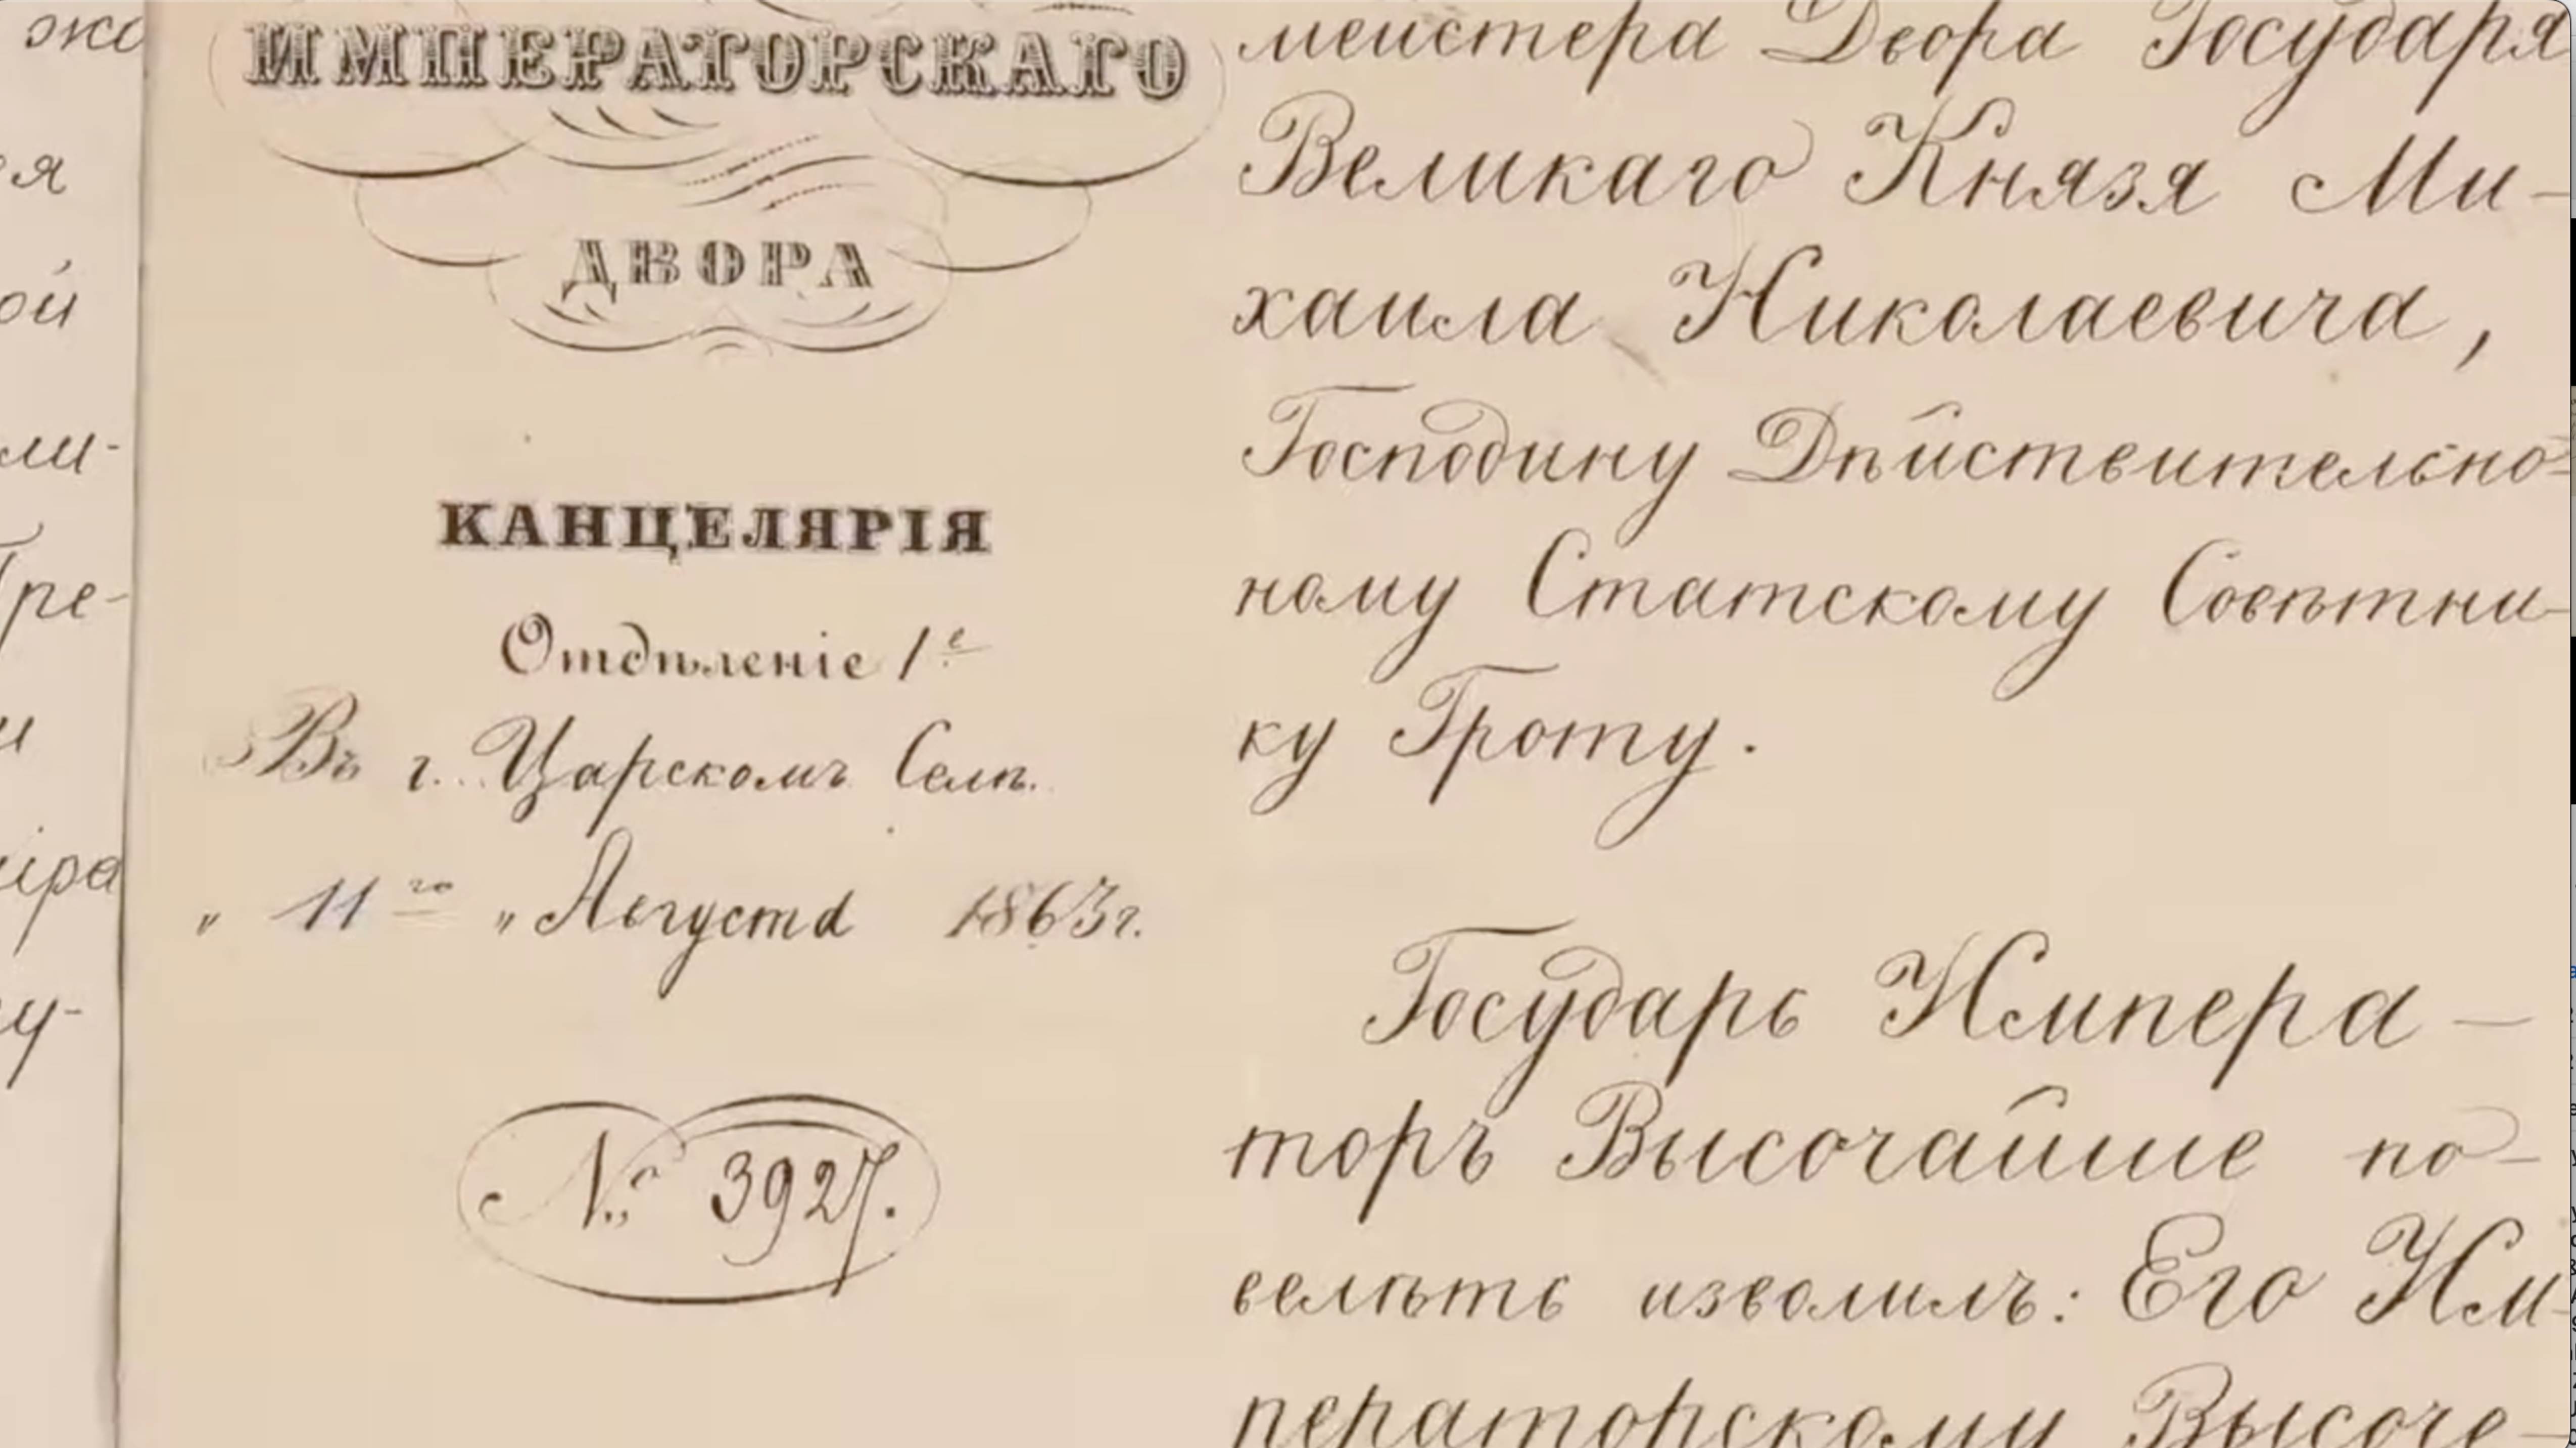 ИМПЕРАТОРСКАГО
ДВОРА
КАНЦЕЛЯРІЯ
Отдѣленіе 1е
Въ г. Царскомъ Селѣ.
„ 11го „ Августа 1863 г.
№ 3927.
мейстера Двора Государя
Великаго Князя Ми-
хаила Николаевича,
Господину Дѣйствительно-
ному Статскому Совѣтни-
ку Гроту.
Государь Импера-
торъ Высочайше по-
велѣть изволилъ: Его Им-
ператорскому Высоче-
ся
ой
ли-
Гре-
и
іра
у-